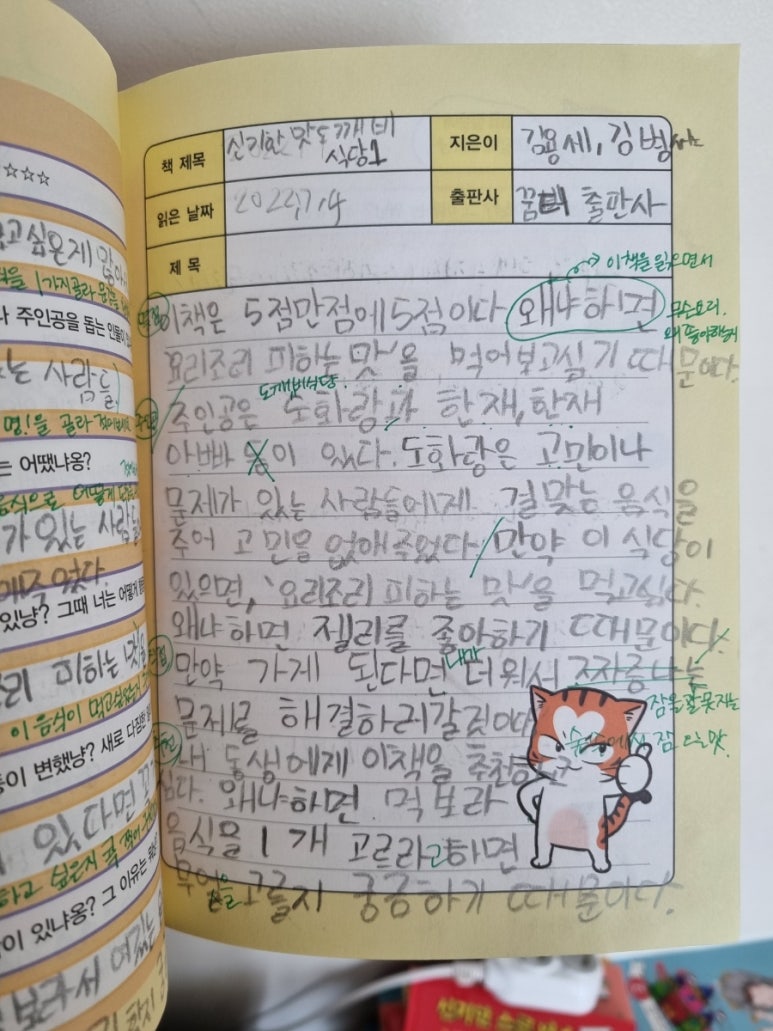 ☆☆☆
고싶은게 많아
1가지골라
주인공을 돕는 인물이
는 사람들
명!을 골라 적어보
는 어땠냐옹?
음식으로 어떻게
가 있는 사람들
애주었다.
있냥? 그때 너는 어떻게
리 피하는 맛
이 음식이 먹고싶었지
들이 변했냥? 새로 다짐한
있다면
하고 싶은지 콕 찍어
람이 있냐옹? 그 이유는
보라서
책 제목 신기한 맛도깨비 식당1
지은이 김용세, 김병섭
읽은 날짜 2022.7.4
출판사 꿈터 출판사
제 목
이책을 읽으면서
이책은 5점만점에 5점이다 왜냐하면
무슨요리.
왜 좋아하는지
요리조리 피하는 맛'을 먹어보고싶기 때문이다.
도깨비식당
주인공은 도화랑과 한재, 한재
아빠 등이 있다. 도화랑은 고민이나
문제가 있는 사람들에게 걸맞는 음식을
주어 고민을 없애주었다. 만약 이 식당이
있으면, '요리조리 피하는 맛'을 먹고싶다.
왜냐하면 젤리를 좋아하기 때문이다.
만약 가게 된다면 내가 더워서 짜증나는
잠을 잘 못자는
문제를 해결하러갈것이다
내 동생에게 이책을 추천하고
싶다. 왜냐하면 먹보라
음식을 1개 고르라고하면
무엇을 고를지 궁금하기 때문이다.